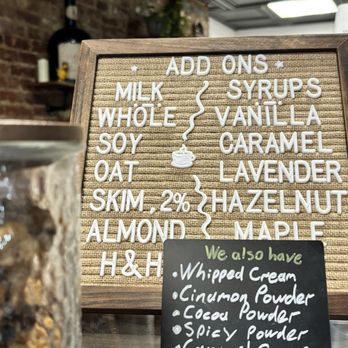 ADD ONS
MILK
WHOLE
SOY
OAT
SKIM, 2%
ALMOND
H&H
SYRUPS
VANILLA
CARAMEL
LAVENDER
HAZELNUT
MAPLE
We also have
• Whipped Cream
• Cinamon Powder
• Cocoa Powder
• Spicy Powder